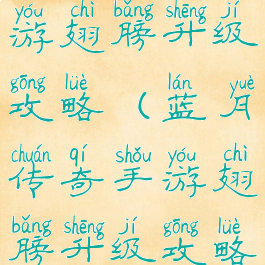 yóu chì bǎng shēng jí
游翅膀升级
gōng lüè lán yuè
攻略（蓝月
chuán qí shǒu yóu chì
传奇手游翅
bǎng shēng jí gōng lüè
膀升级攻略